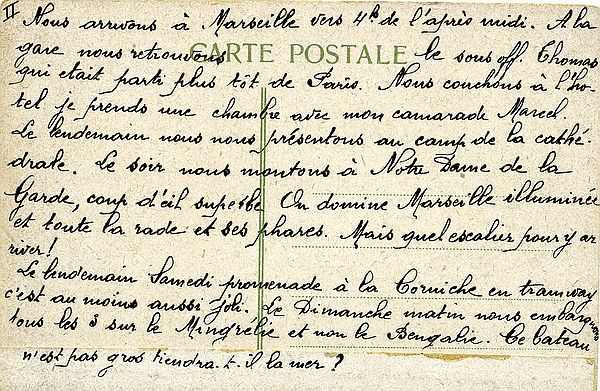 II Nous arrivons à Marseille vers 4h de l'après midi. A la
gare nous retrouvons le sous off. Thomas
CARTE POSTALE
qui etait parti plus tôt de Paris. Nous couchons à l'ho-
tel je prends une chambre avec mon camarade Marcel.
Le lendemain nous nous présentons au camp de la cathé-
drale. Le soir nous montons à Notre Dame de la
Garde, coup d'œil superbe On domine Marseille illuminée
et toute la rade et ses phares. Mais quel escalier pour y ar
river!
Le lendemain Samedi promenade à la Corniche en tramway
c'est au moins aussi joli. Le Dimanche matin nous embarquons
tous les 3 sur le Mingrélie et non le Bengalie. Ce bateau
n'est pas gros tiendra.t.il la mer ?